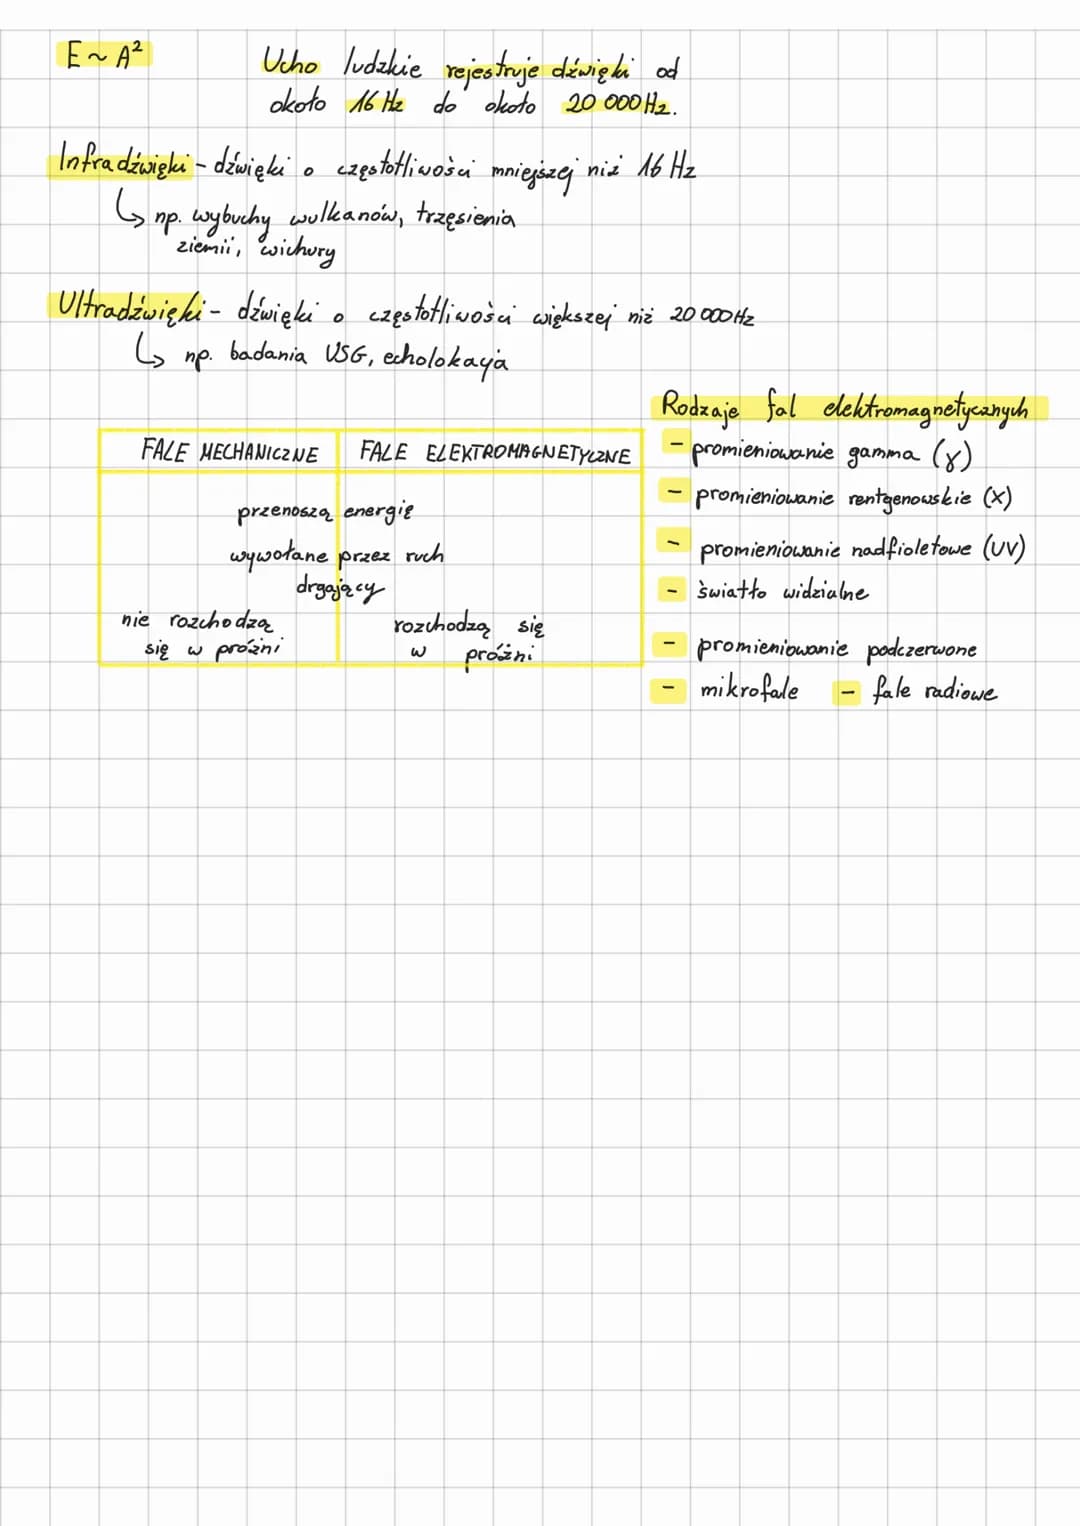 E ~ A²
Ucho ludzkie rejestruje dźwięki od
około 16 Hz do około 20 000 Hz.
Infradźwięki - dźwięki o częstotliwości mniejszej niż 16 Hz
↳ np. wybuchy wulkanów, trzęsienia
ziemii, wichury
Ultradźwięki - dźwięki o częstotliwości większej niż 20 000 Hz
↳ np. badania USG, echolokacja
FALE MECHANICZNE FALE ELEKTROMAGNETYCZNE
przenoszą energię
wywołane przez ruch
drgający
nie rozchodzą
się w próżni
rozchodzą się
w próżni
Rodzaje fal elektromagnetycznych
- promieniowanie gamma (γ)
- promieniowanie rentgenowskie (X)
- promieniowanie nadfioletowe (UV)
- światło widzialne
- promieniowanie podczerwone
- mikrofale - fale radiowe